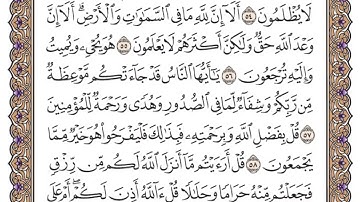 لَا يُظْلَمُونَ ٥٤ أَلَآ إِنَّ لِلَّهِ مَا فِي ٱلسَّمَٰوَٰتِ وَٱلْأَرْضِۗ أَلَآ إِنَّ
وَعْدَ ٱللَّهِ حَقٌّ وَلَٰكِنَّ أَكْثَرَهُمْ لَا يَعْلَمُونَ ٥٥ هُوَ يُحْيِۦ وَيُمِيتُ
وَإِلَيْهِ تُرْجَعُونَ ٥٦ يَٰٓأَيُّهَا ٱلنَّاسُ قَدْ جَآءَتْكُم مَّوْعِظَةٌ
مِّن رَّبِّكُمْ وَشِفَآءٌ لِّمَا فِي ٱلصُّدُورِ وَهُدًى وَرَحْمَةٌ لِّلْمُؤْمِنِينَ
٥٧ قُلْ بِفَضْلِ ٱللَّهِ وَبِرَحْمَتِهِۦ فَبِذَٰلِكَ فَلْيَفْرَحُوا۟ هُوَ خَيْرٌ مِّمَّا
يَجْمَعُونَ ٥٨ قُلْ أَرَءَيْتُم مَّآ أَنزَلَ ٱللَّهُ لَكُم مِّن رِّزْقٍ
فَجَعَلْتُم مِّنْهُ حَرَامًا وَحَلَٰلًا قُلْ ءَآللَّهُ أَذِنَ لَكُمْۖ أَمْ عَلَى